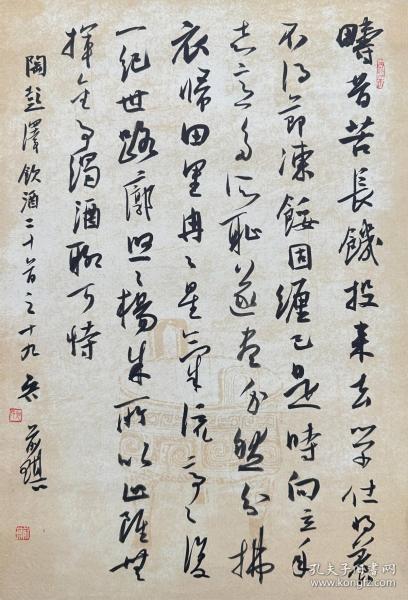 疇昔苦長饑投耒去學仕將養
不得節凍餒固纏己是時向立年
志意多所恥遂盡介然分拂
衣歸田里冉々星氣流亭々復
一紀世路廓悠々楊朱所以止雖無
揮金事濁酒聊可恃
陶彭澤飲酒二十首之十九
孔夫子旧书网
www.kongfz.com